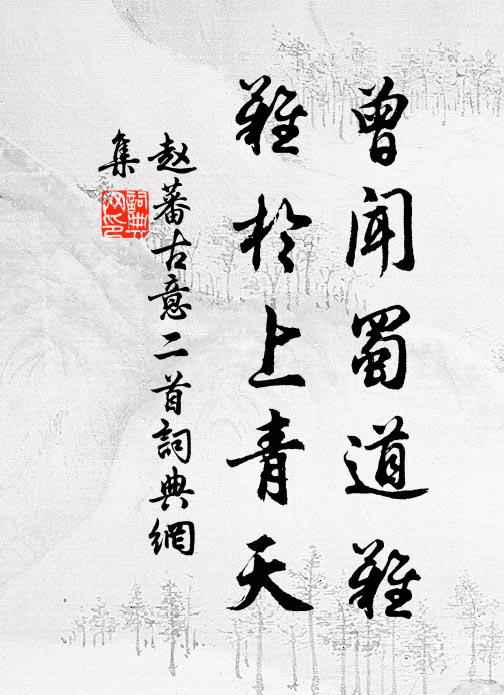 曾闻蜀道难
難於上青天
赵蕃古意二首詞典網
集
詞典
网印